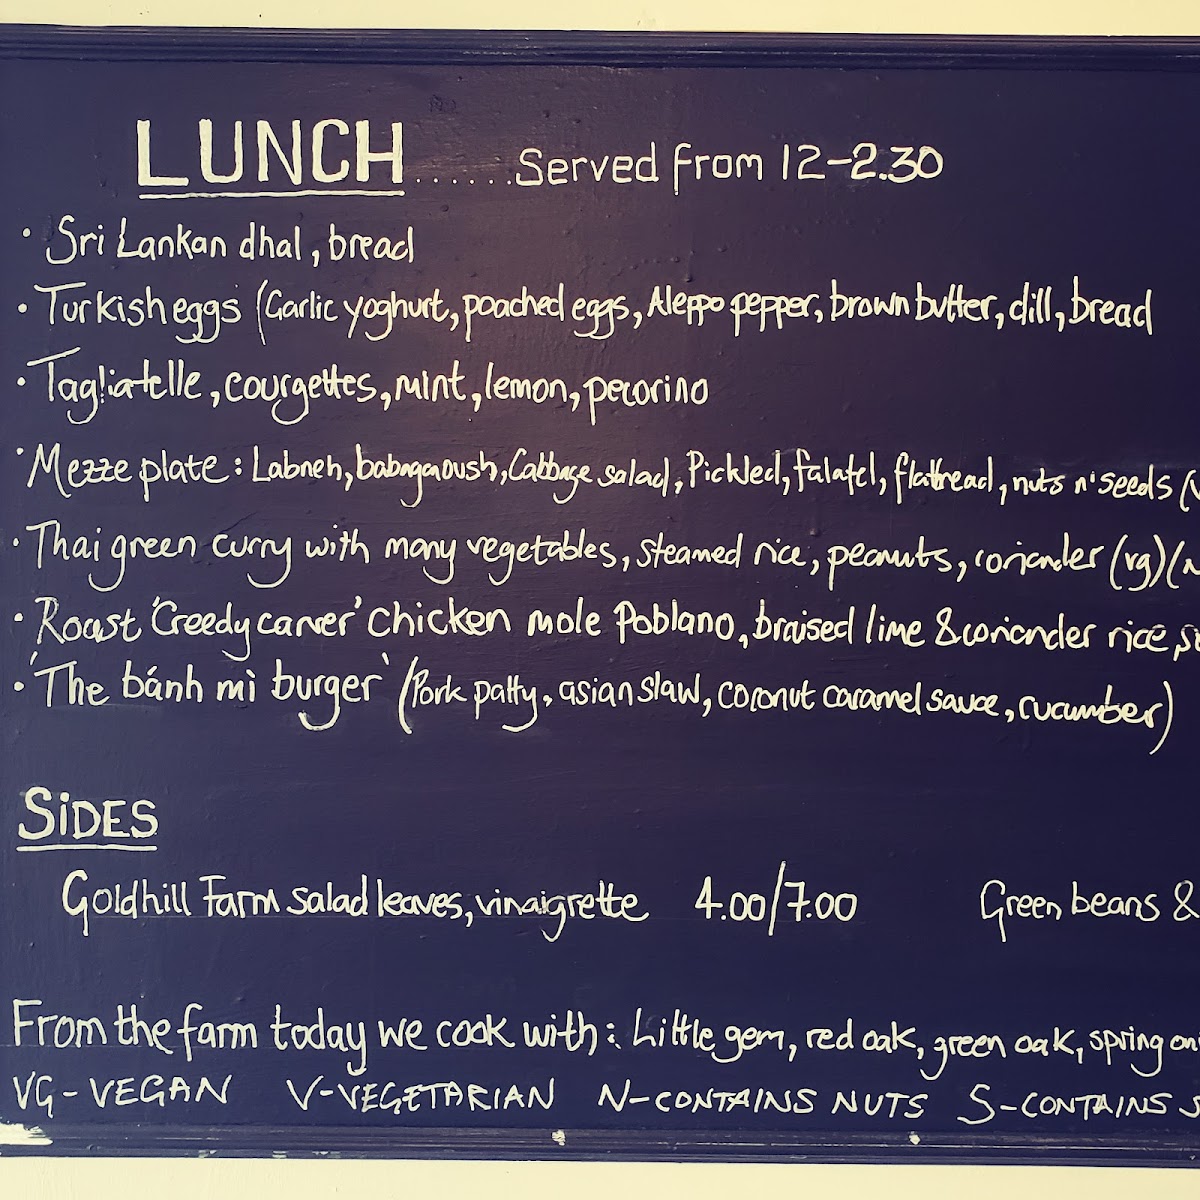 LUNCH ......Served from 12-2.30
• Sri Lankan dhal, bread
• Turkish eggs (Garlic yoghurt, poached eggs, Aleppo pepper, brown butter, dill, bread
• Tagliatelle, courgettes, mint, lemon, pecorino
• Mezze plate: Labneh, babagaoush, Cabbage salad, Pickled, falafel, flatbread, nuts n' seeds (V
• Thai green curry with many vegetables, steamed rice, peanuts, coriander (vg)(N
• Roast 'Creedy carver' chicken mole Poblano, braised lime & coriander rice,
• 'The bánh mì burger' (Pork patty, asian slaw, coconut caramel sauce, cucumber)
SIDES
Goldhill Farm salad leaves, vinaigrette 4.00/7.00 Green beans &
From the farm today we cook with: Little gem, red oak, green oak, spring on
VG-VEGAN V-VEGETARIAN N-CONTAINS NUTS S-CONTAINS S